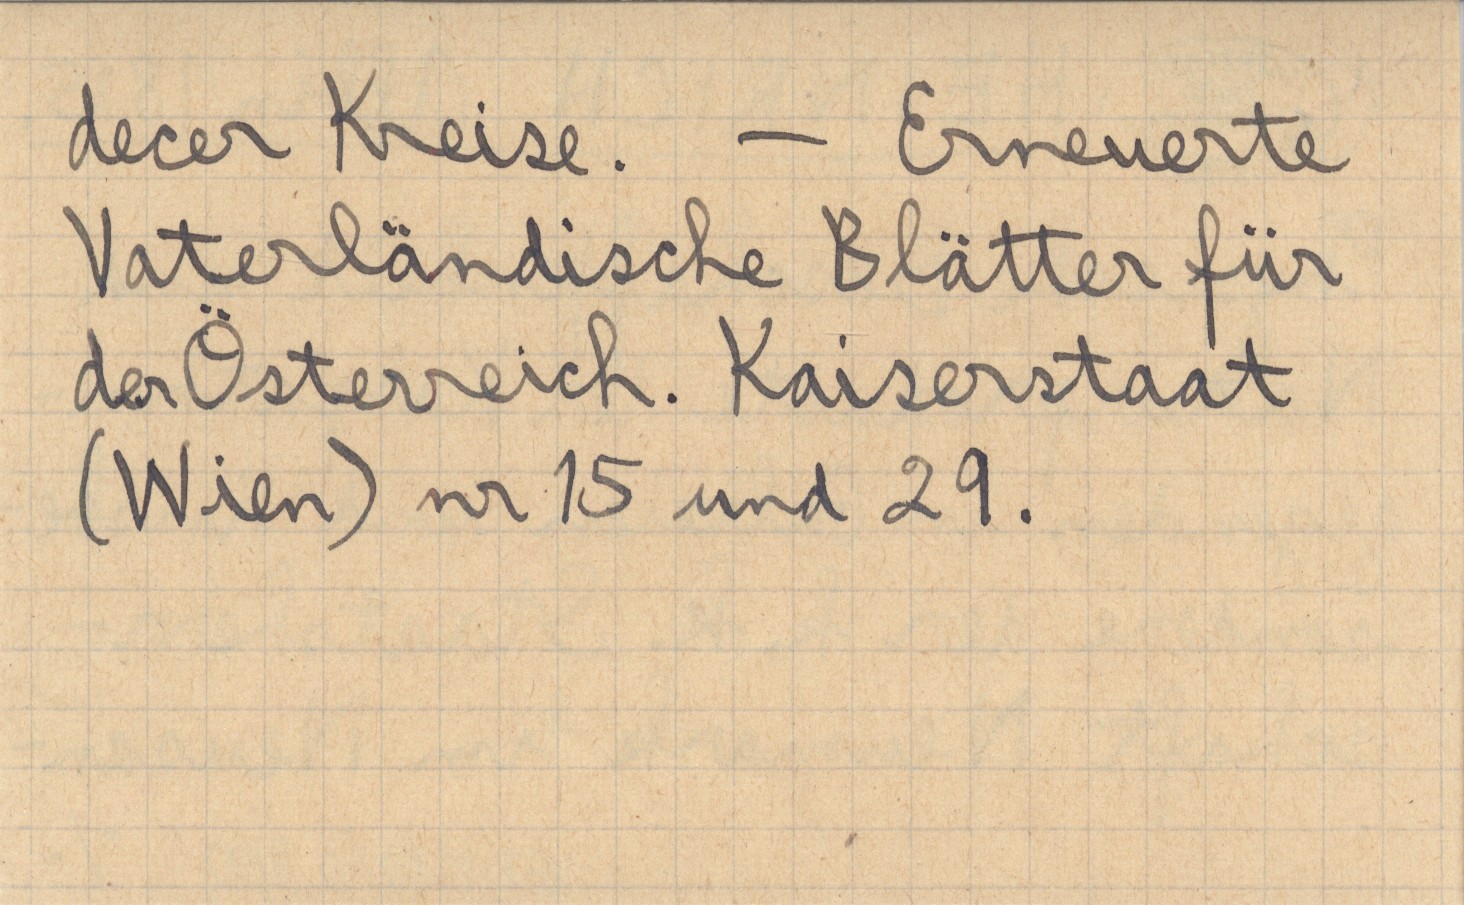 decer Kreise. — Erneuerte
Vaterländische Blätter für
der Österreich. Kaiserstaat
(Wien) nr 15 und 29.